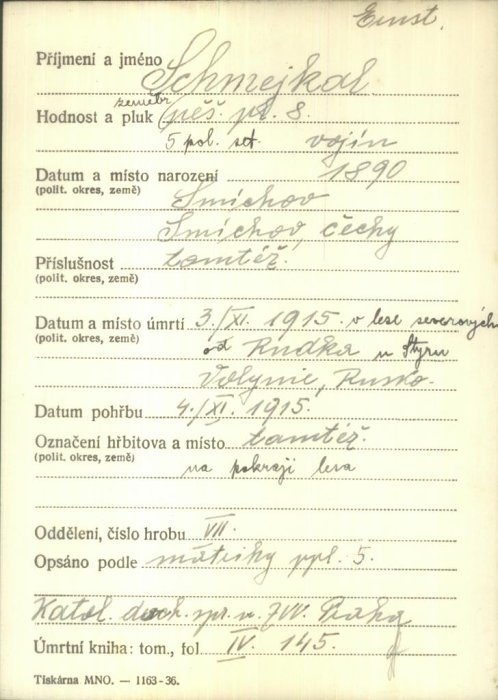 Ernst.
Příjmení a jméno Schmejkal
zeměbr.
Hodnost a pluk pěš. pl. 8.
5 pol. set. vojín
Datum a místo narození 1890
(polit. okres, země) Smíchov
Smíchov, Čechy
Příslušnost tamtéž.
(polit. okres, země)
Datum a místo úmrtí 3./XI. 1915. v lese severových.
(polit. okres, země) od Rudka u Styru
Volynie, Rusko.
Datum pohřbu 4./XI. 1915.
Označení hřbitova a místo tamtéž.
(polit. okres, země) na pokraji lesa
Oddělení, číslo hrobu VII.
Opsáno podle matriky ppl. 5.
Katol. duch. spr. u ZVV. Praha
Úmrtní kniha: tom., fol IV. 145.
Tiskárna MNO. — 1163-36.